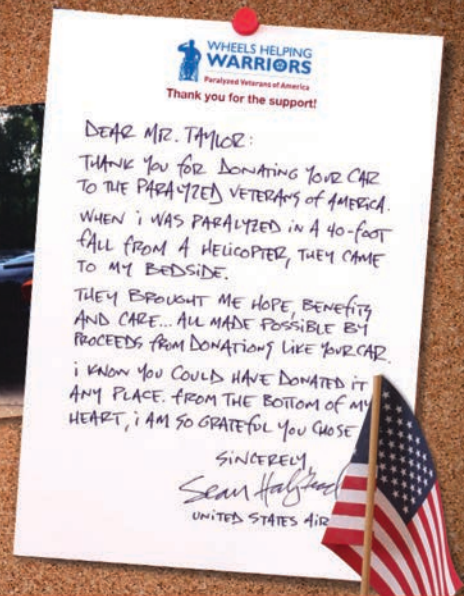 WHEELS HELPING
WARRIORS
Paralyzed Veterans of America
Thank you for the support!
DEAR MR. TAYLOR:
THANK YOU FOR DONATING YOUR CAR
TO THE PARALYZED VETERANS of AMERICA.
WHEN i WAS PARALYZED iN A 40-FOOT
fALL fROM A HELiCOPTER, THEY CAME
TO MY BEDSiDE.
THEY BROUGHT ME HOPE, BENEfiTS
AND CARE... ALL MADE POSSiBLE BY
PROCEEDS fROM DONATiONS LiKE YOUR CAR.
i KNOW YOU COULD HAVE DONATED iT
ANY PLACE. fROM THE BOTTOM OF MY
HEART, i AM SO GRATEfUL YOU CHOSE
SiNCERELY,
Sean
UNiTED STATES AiR